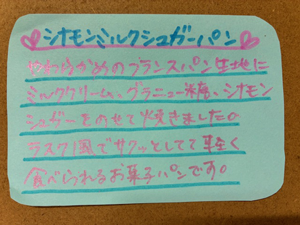 シナモンミルクシュガーパン
やわらかめのフランスパン生地に
ミルククリーム、グラニュー糖、シナモン
シュガーをのせて焼きました。
ラスク風でサクッとしてて軽く
食べられるお菓子パンです。